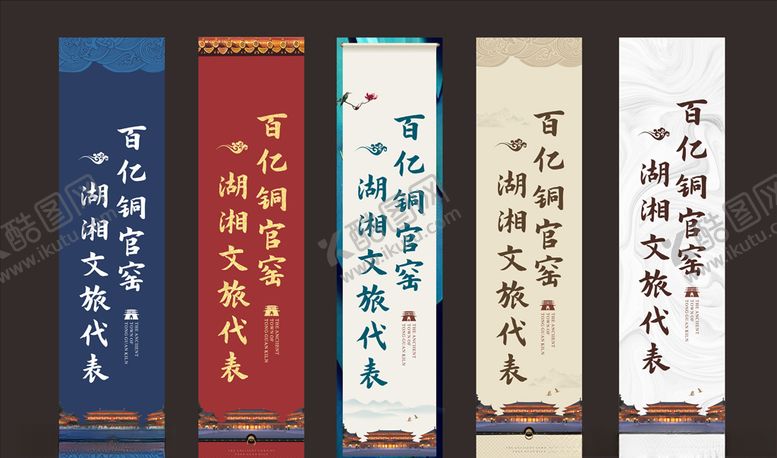 百亿铜官窑
湖湘文旅代表
THE ANCIENT
TOWN OF
TONGGUAN KILN
百亿铜官窑
湖湘文旅代表
THE ANCIENT
TOWN OF
TONGGUAN KILN
百亿铜官窑
湖湘文旅代表
THE ANCIENT
TOWN OF
TONGGUAN KILN
百亿铜官窑
湖湘文旅代表
THE ANCIENT
TOWN OF
TONGGUAN KILN
百亿铜官窑
湖湘文旅代表
THE ANCIENT
TOWN OF
TONGGUAN KILN
酷图网
www.ikutu.com
酷图网
www.ikutu.com
酷图网
www.ikutu.com